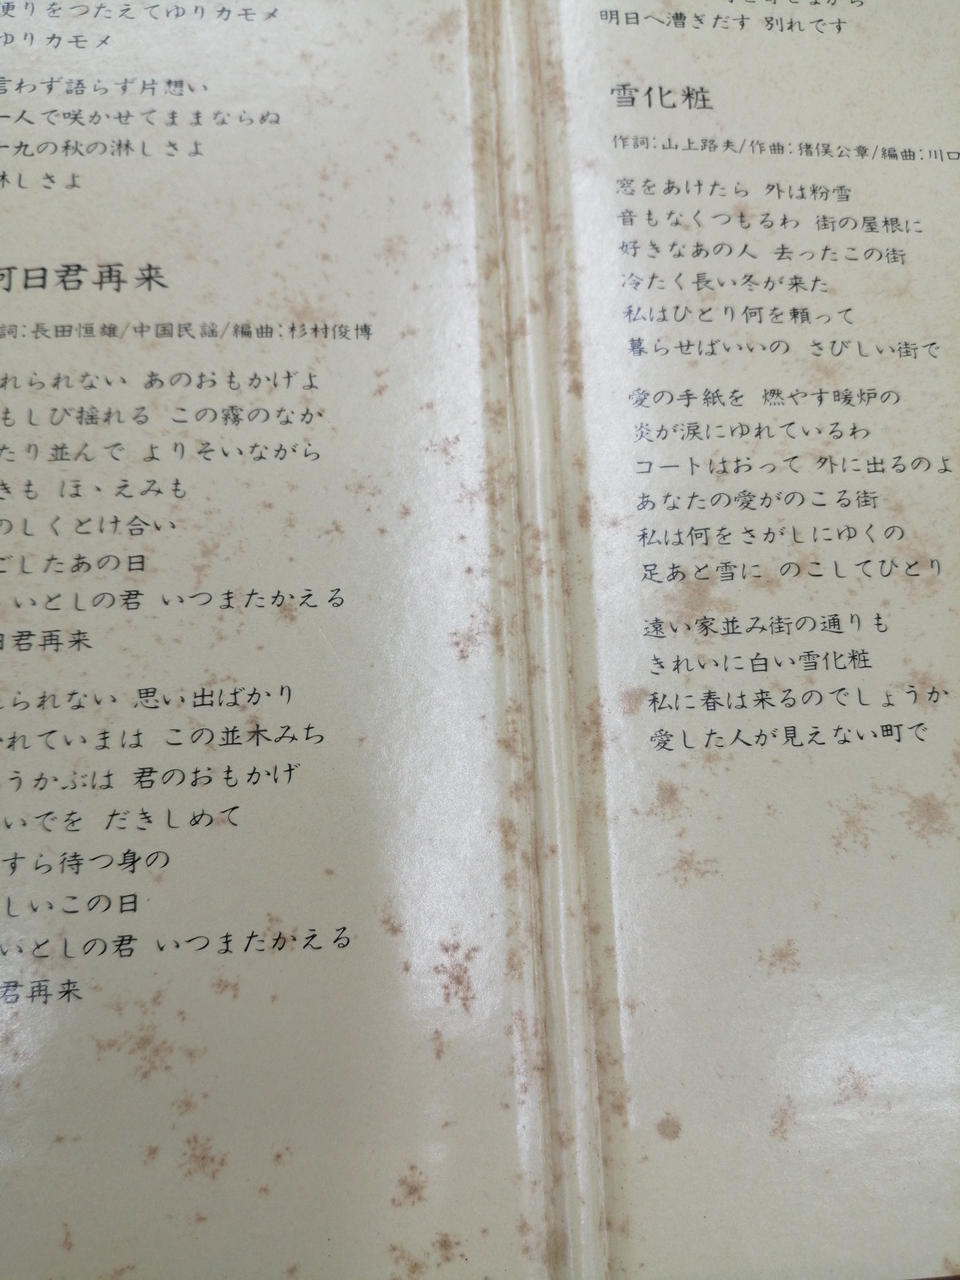 便りをつたえてゆりカモメ
ゆりカモメ
言わず語らず片想い
一人で咲かせてままならぬ
十九の秋の淋しさよ
淋しさよ
何日君再来
詞:長田恒雄/中国民謡/編曲:杉村俊博
れられない あのおもかげよ
もしび揺れる この霧のなか
たり並んで よりそいながら
きも ほゝえみも
のしくとけ合い
ごしたあの日
いとしの君 いつまたかえる
日君再来
れられない 思い出ばかり
かれていまは この並木みち
うかぶは 君のおもかげ
いでを だきしめて
すら待つ身の
しいこの日
いとしの君 いつまたかえる
君再来
明日へ漕ぎだす 別れです
雪化粧
作詞:山上路夫/作曲:猪俣公章/編曲:川口
窓をあけたら 外は粉雪
音もなくつもるわ 街の屋根に
好きなあの人 去ったこの街
冷たく長い冬が来た
私はひとり何を頼って
暮らせばいいの さびしい街で
愛の手紙を 燃やす暖炉の
炎が涙にゆれているわ
コートはおって 外に出るのよ
あなたの愛がのこる街
私は何をさがしにゆくの
足あと雪に のこしてひとり
遠い家並み街の通りも
きれいに白い雪化粧
私に春は来るのでしょうか
愛した人が見えない町で